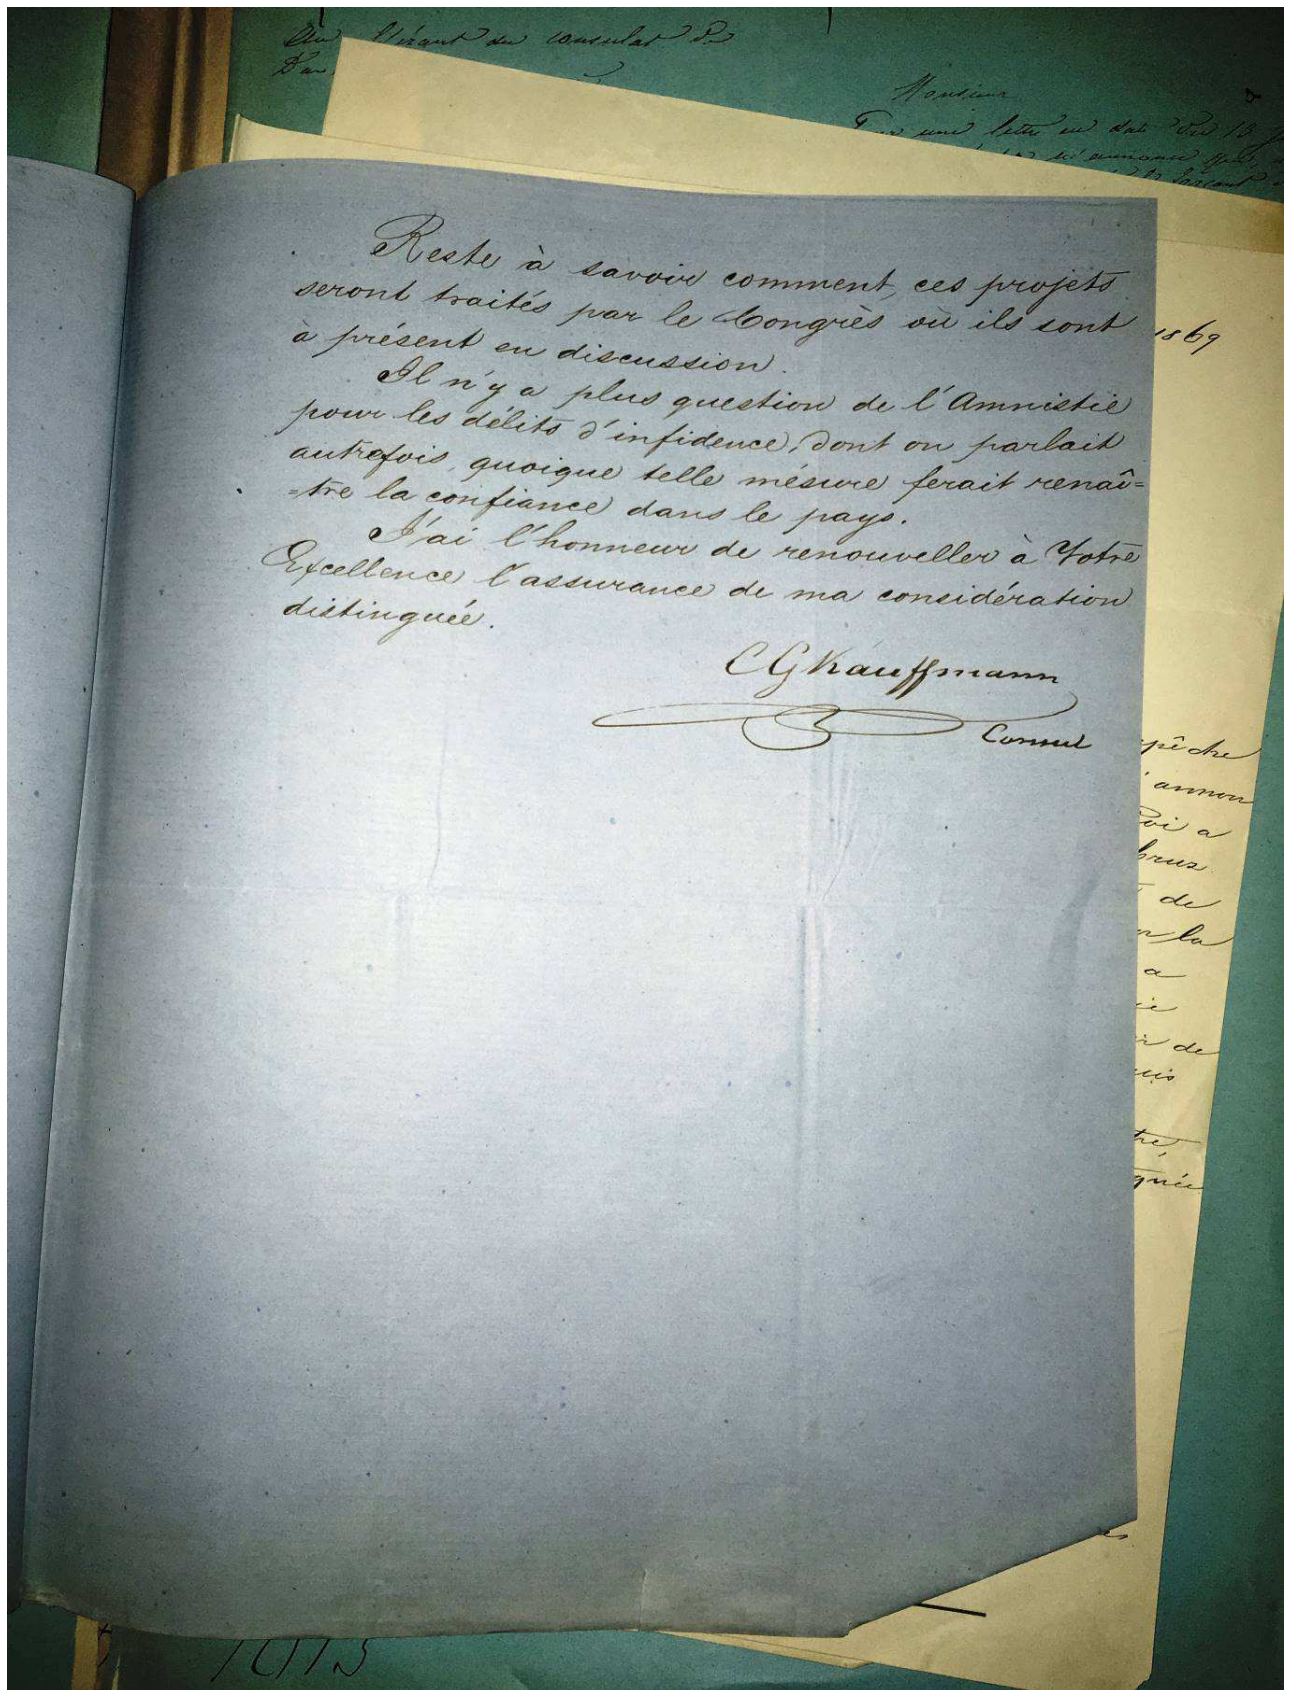 Au Gérant du consulat de
Monsieur
Par une lettre en date du 13
1869
Reste à savoir comment, ces projets
seront traités par le Congrès où ils sont
à présent en discussion.
Il n'y a plus question de l'Amnistie
pour les délits d'infidence, dont on parlait
autrefois, quoique telle mésure ferait renaî=
=tre la confiance dans le pays.
J'ai l'honneur de renouveller à Votre
Excellence l'assurance de ma considération
distinguée.
CG Kauffmann
Consul
pêche
annon
oi a
brux
de
la
a
ie
de
uis
tre,
guée